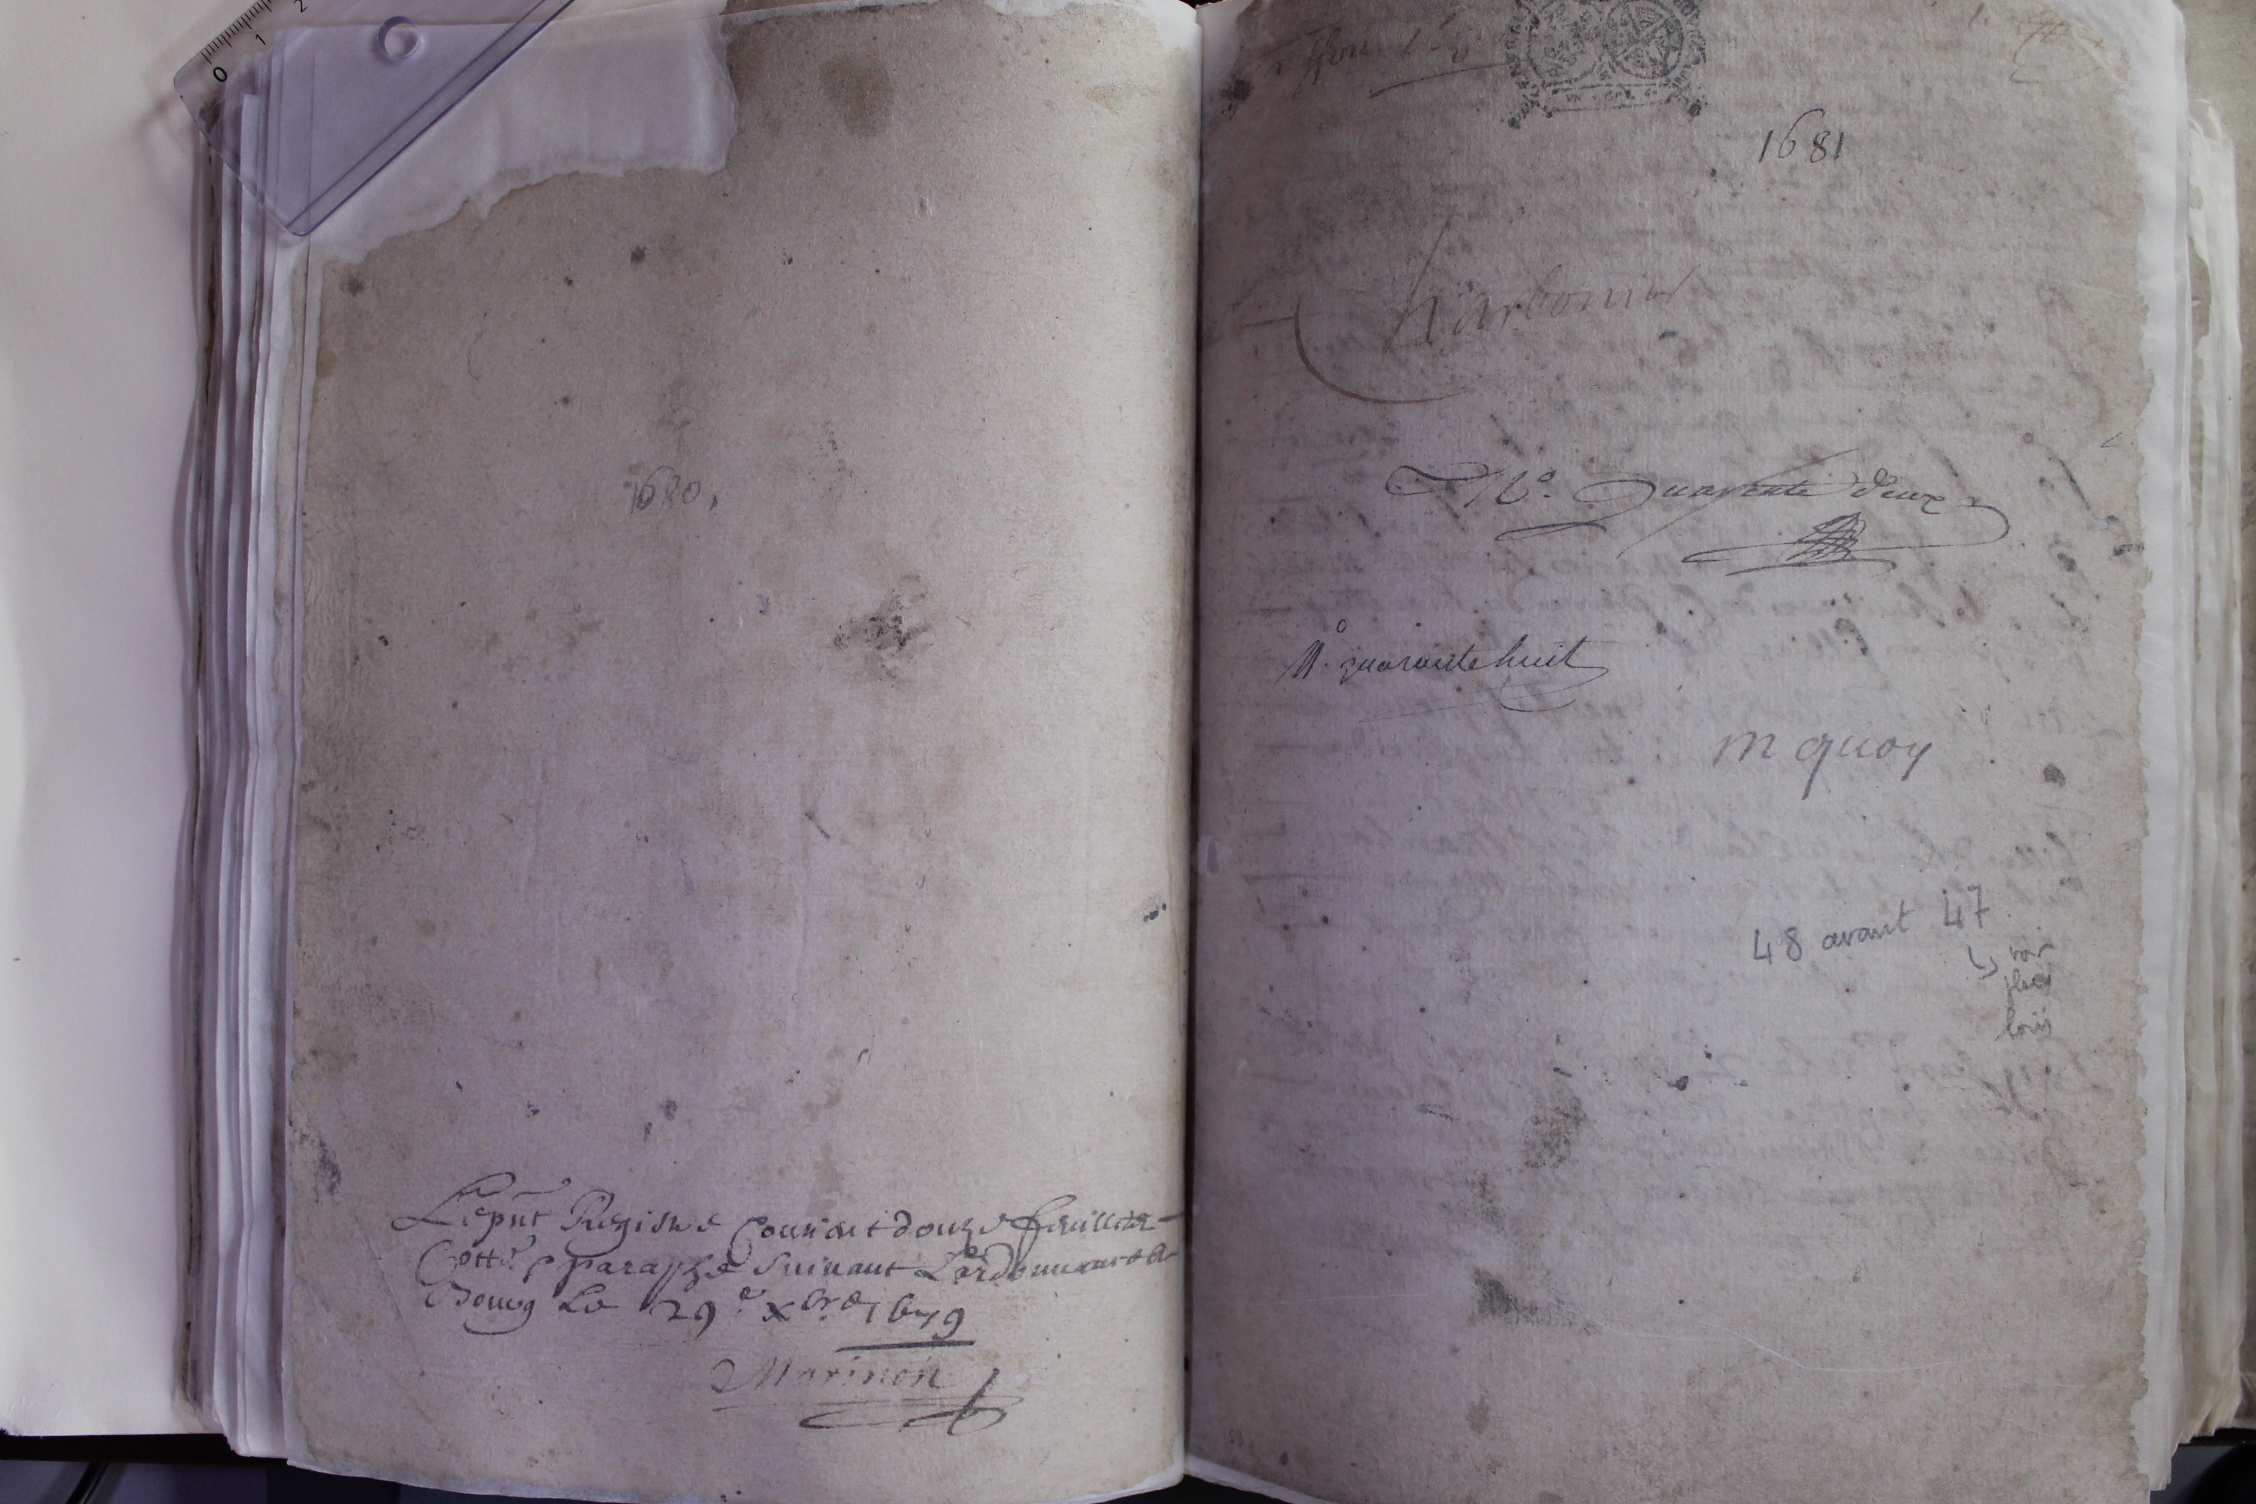 1680.
Le pnt Registre Contient douze feuillets
Cotté & paraphé suivant Lordonnance A
Bourg Le 29e xbre 1679
Marinon
1681
Charbonier
No. Quarente deux
No. quarante huit
m quoy
48 avant 47
↳ voir
plus
loin